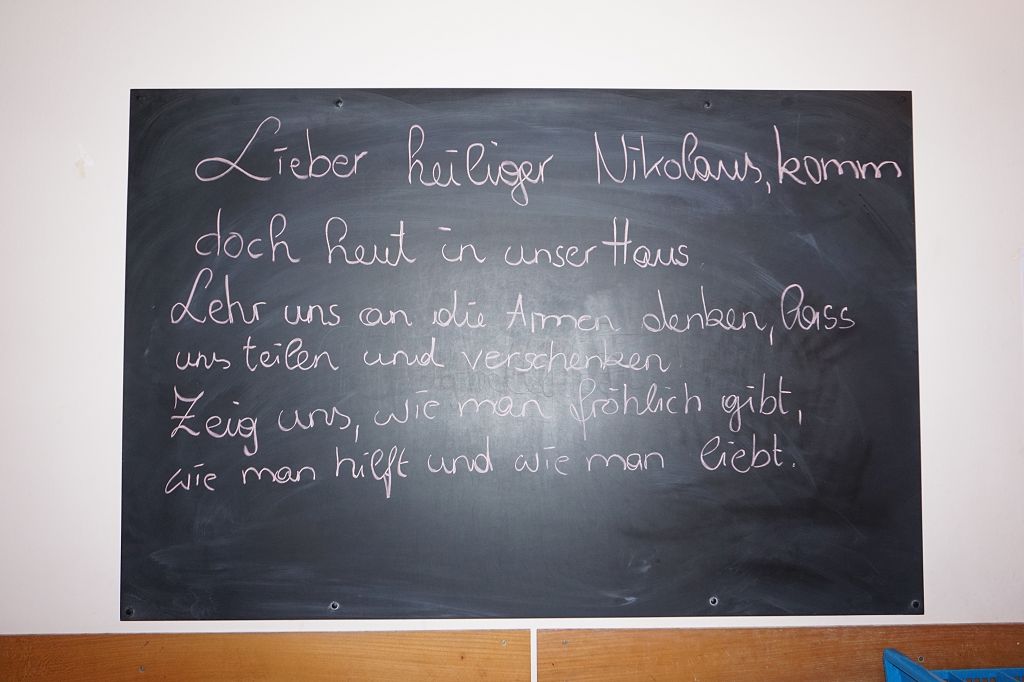 Lieber heiliger Nikolaus, komm
doch heut in unser Haus.
Lehr uns an die Armen denken, lass
uns teilen und verschenken.
Zeig uns, wie man fröhlich gibt,
wie man hilft und wie man liebt.